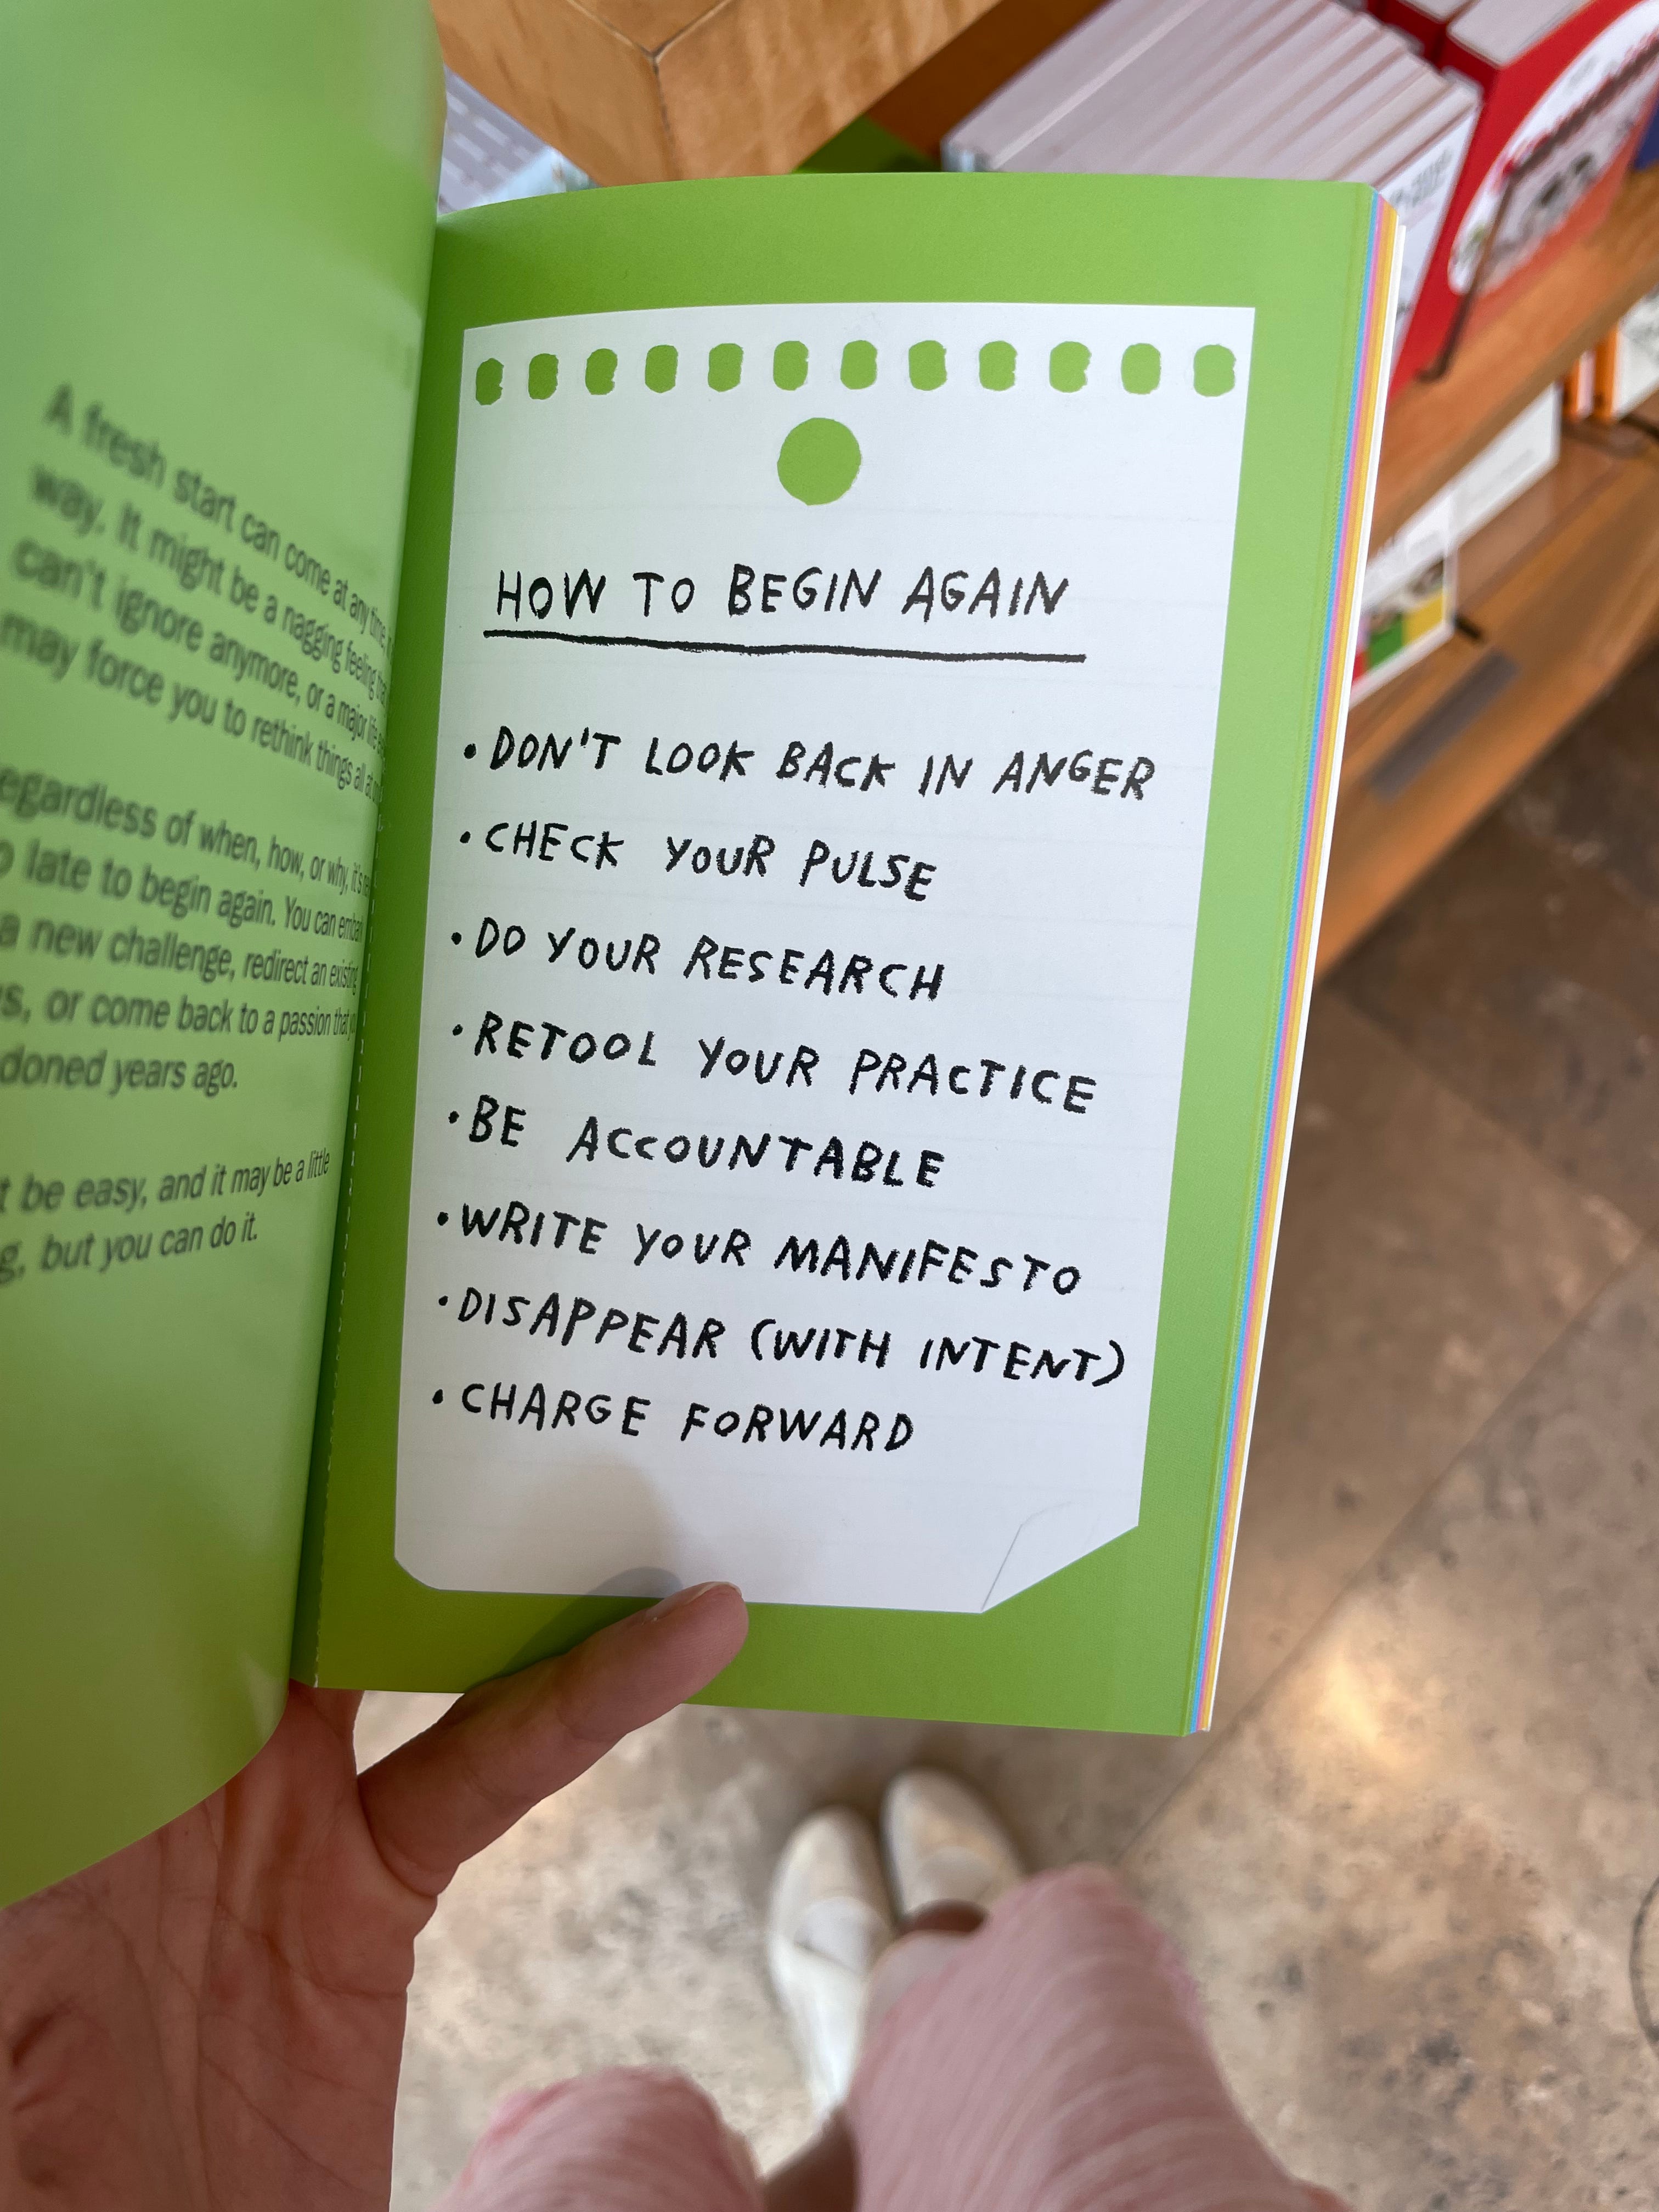 A fresh start can come at any time,
way. It might be a nagging feeling
can't ignore anymore, or a major life
may force you to rethink things all at
of when, how, or why, it's
late to begin again. You can
a new challenge, redirect an existing
or come back to a passion that
years ago.
be easy, and it may be a little
but you can do it.
HOW TO BEGIN AGAIN
• DON'T LOOK BACK IN ANGER
• CHECK YOUR PULSE
• DO YOUR RESEARCH
• RETOOL YOUR PRACTICE
• BE ACCOUNTABLE
• WRITE YOUR MANIFESTO
• DISAPPEAR (WITH INTENT)
• CHARGE FORWARD